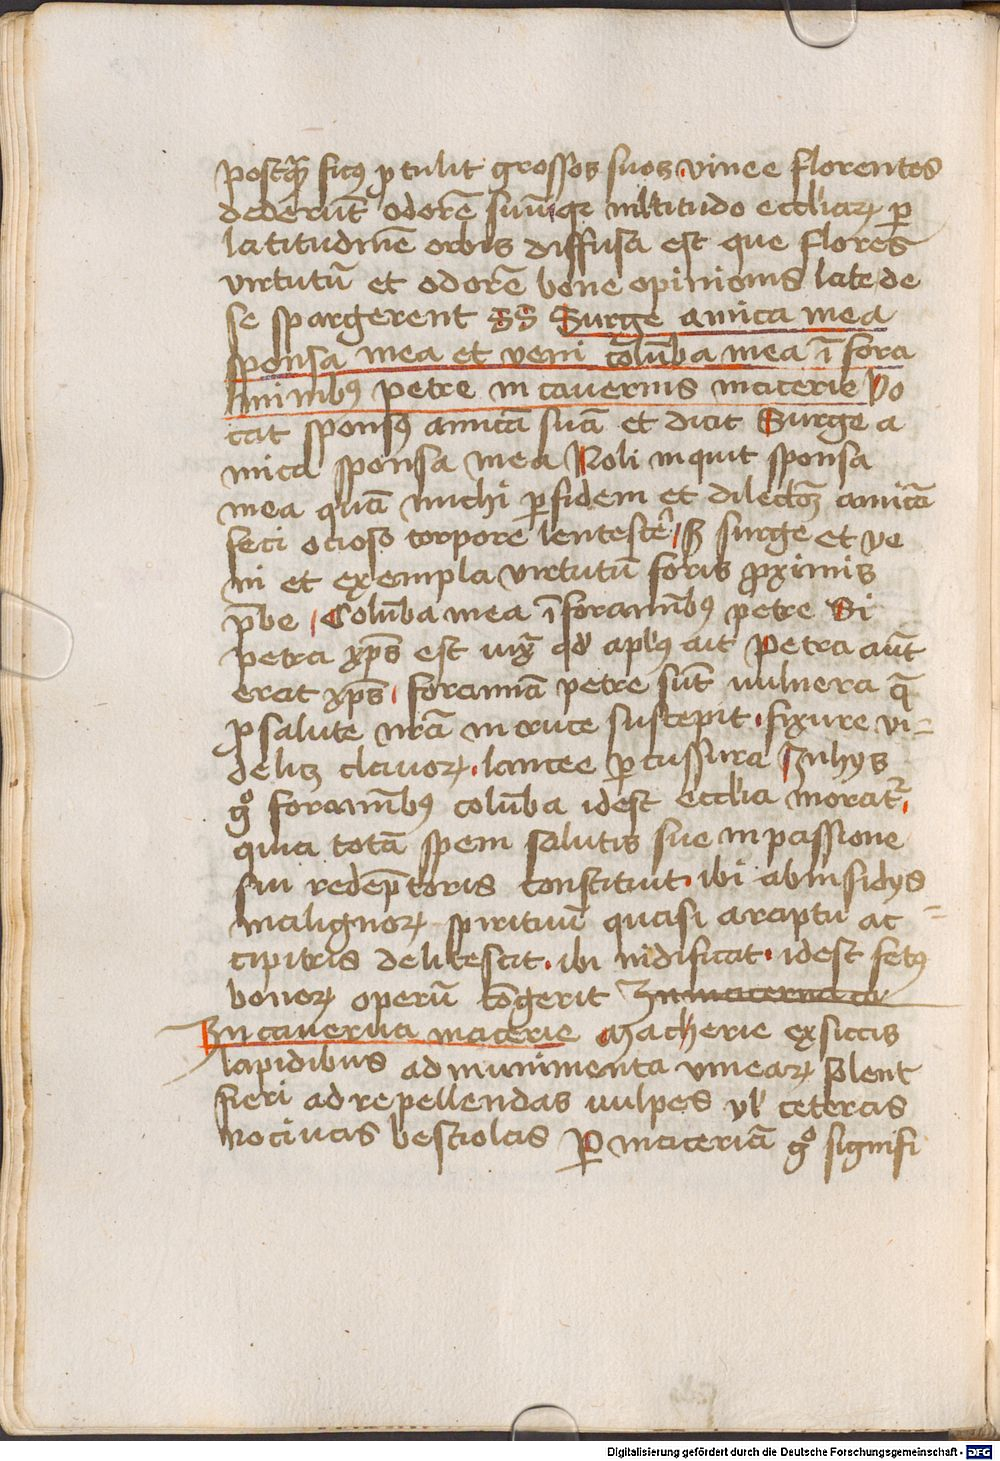 postq̃ ficꝰ ꝓtulit grossos suos vinee florentes
dederūt odorē suū qꝛ mltitudo eccliaꝝ ꝑ
latitudinē orbis diffusa est que flores
virtutū et odorē bone opinionis late de
se spargerent Surge amica mea
sponsa mea et veni colūba mea ī fora
minibꝰ petre in cavernis macerie Vo
cat sponsꝰ amicā suā et dicit Surge a
mica sponsa mea Noli inquit sponsa
mea quā michi ꝑ fidem et dilectōꝫ amicā
feci ocioso torpore lentescē sꝫ surge et ve
ni et exempla virtutū foris ꝓximis
p̄be Colūba mea ī foramībꝰ petre Si
petra xp̄s est iuxͣ qd̓ aplꝰ ait Petra aūt
erat xp̄s foramīa petre sūt uulnera q̄
ꝓ salute nr̄a in cruce suscepit fixure vi=
delicꝫ clavoꝝ lancee ꝑcussura In hys
gͦ foramībꝰ colūba idest ecclia moratᷣ
quia totā spem salutis sue in passione
sui redēptoris constituit ibi ab insidys
malignoꝝ spirituū quasi a raptu ac=
cipitris delitescat ibi nidificat idest fetꝰ
bonoꝝ operū cōgerit In maceria ca
In caverna macerie Macherie ex siccis
lapidibus ad munimenta vineaꝝ solent
fieri ad repellendas uulpes vl̓ ceteras
nocivas bestiolas Per maceriā gͦ signifi
Digitalisierung gefördert durch die Deutsche Forschungsgemeinschaft - DFG